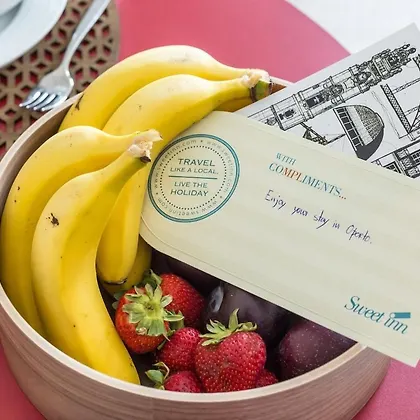 TRAVEL
LIKE A LOCAL.
LIVE THE
HOLIDAY
WITH
COMPLIMENTS...
Enjoy your stay in Oporto.
Sweet inn